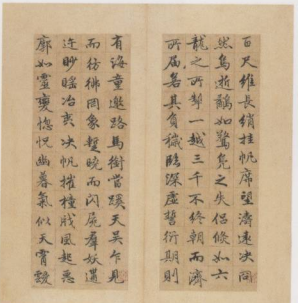 百尺維長綃挂帆席望濤遠決冏
然鳥逝鷸如驚鳧之失侶倐如六
龍之所掣一越三千不終朝而濟
所屆若其負穢臨深虛誓衍期則
有海童邀路馬銜當蹊天吳乍見
而彷彿罔象暫曉而閃屍羣妖遘
迕眇䁘冶夷決帆摧橦戕風起惡
廓如靈變惚怳幽暮氣似天霄靉